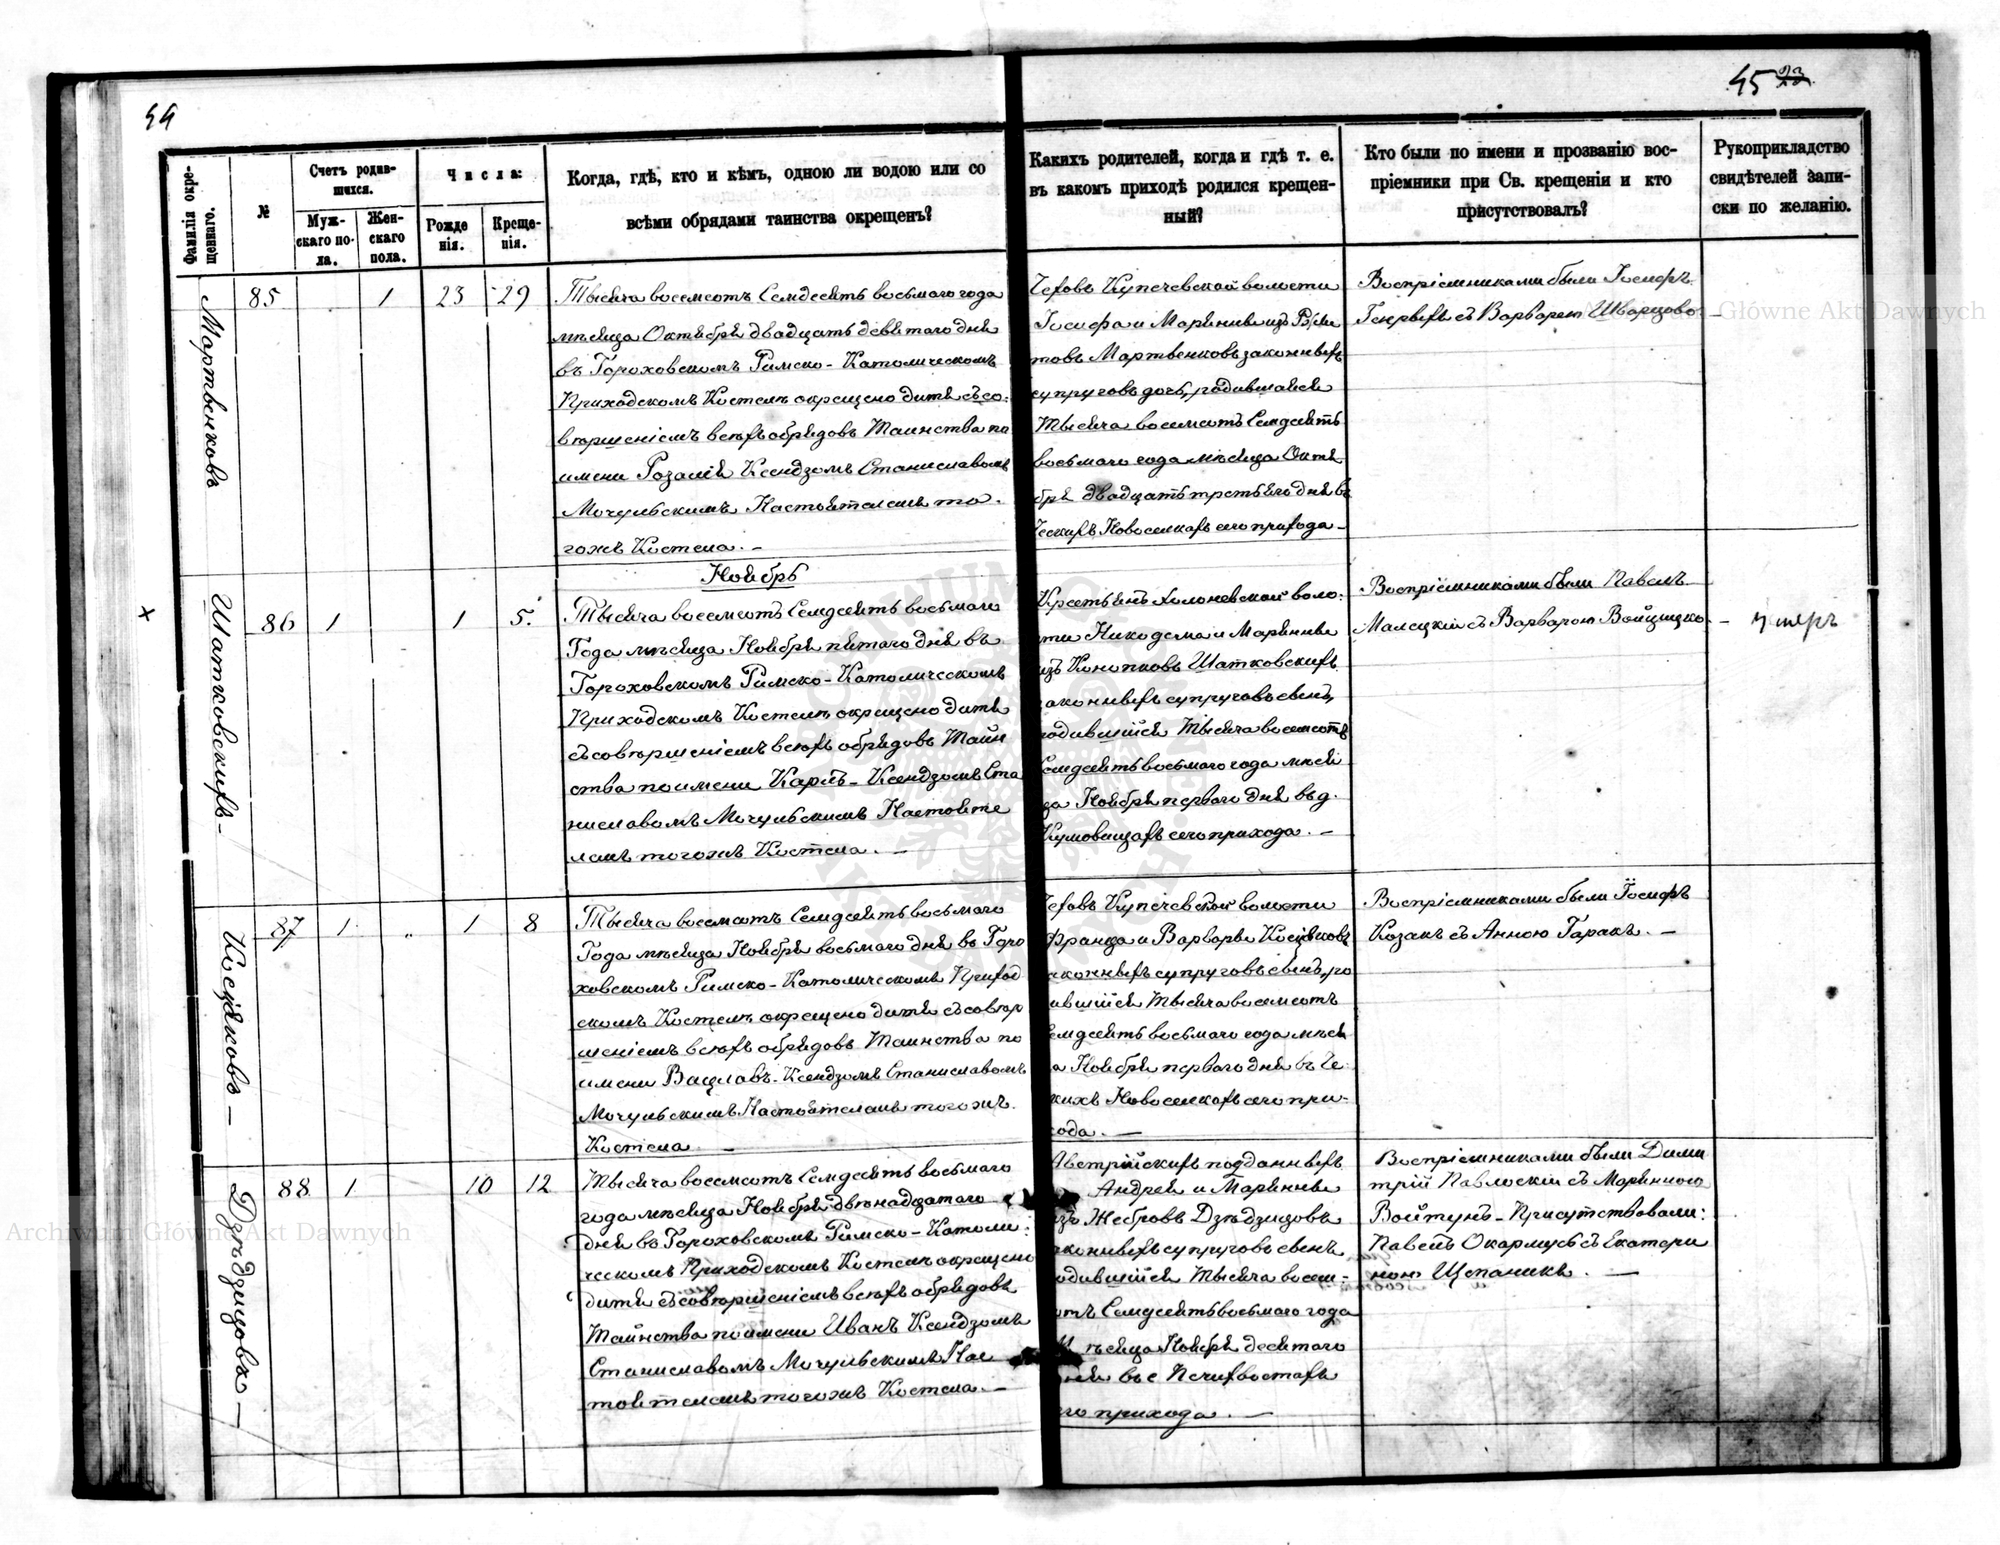 44
45 23
Фамилія окре-
щеннаго.
№
Счетъ родив-
шихся.
Муж-
скаго по-
ла.
Жен-
скаго
пола.
Числа:
Рожде
нія.
Креще-
нія.
Когда, гдѣ, кто и кѣмъ, одною ли водою или со
всѣми обрядами таинства окрещенъ?
Какихъ родителей, когда и гдѣ т. е.
въ какомъ приходѣ родился крещен-
ный?
Кто были по имени и прозванію вос-
пріемники при Св. крещеніи и кто
присутствовалъ?
Рукоприкладство
свидѣтелей запи-
ски по желанію.
Мартвенковъ
85 1 23 29
Тысяча восемсотъ Семдесятъ восьмаго года
мѣсяца Октября двадцать девятаго дня
въ Гороховскомъ Римско-Католическомъ
Приходскомъ Костелѣ окрещено дитя съ со-
вершеніемъ всѣхъ обрядовъ Таинства по
имени Розалія Ксендзомъ Станиславомъ
Мочульскимъ Настоятелемъ то-
гожъ Костела. —
Чеховъ Купечевской волости
Іосифа и Маріянны изъ
товъ Мартвенковъ законныхъ
супруговъ дочь, родившаяся
Тысяча восемсотъ Семдесятъ
восьмаго года мѣсяца Октя
бря двадцать третьяго дня въ
Ческихъ Новоселкахъ сего прихода —
Воспріемниками были Іосифъ
съ Варварою Шварцово —
Ноябрь
Шатковскихъ —
86 1 1 5.
Тысяча восемсотъ Семдесятъ восьмаго
Года мѣсяца Ноября пятаго дня въ
Гороховскомъ Римско-Католическомъ
Приходскомъ Костелѣ окрещено дитя
съ совершеніемъ всѣхъ обрядовъ Таин
ства по имени Карлъ — Ксендзомъ Ста
ниславомъ Мочульскимъ Настояте
лемъ тогожъ Костела. —
Крестьянъ Холоневской воло-
сти Никодема и Маріянны
изъ Конопковъ Шатковскихъ
законныхъ супруговъ сынъ,
родившійся Тысяча восемсотъ
Семдесятъ восьмаго года мѣся
ца Ноября перваго дня въ д.
Кумовищахъ сего прихода. —
Воспріемниками были Павелъ
Малецкій съ Варварою Войцицко —
умеръ
Косцяковъ —
87 1 „ 1 8
Тысяча восемсотъ Семдесятъ восьмаго
Года мѣсяца Ноября восьмаго дня въ Горо
ховскомъ Римско-Католическомъ Приход
скомъ Костелѣ окрещено дитя съ совер
шеніемъ всѣхъ обрядовъ Таинства по
имени Вацлавъ. Ксендзомъ Станиславомъ
Мочульскимъ Настоятелемъ тогожъ
Костела. —
Чеховъ Купечевской волости
Франца и Варвары Косцяковъ
законныхъ супруговъ сынъ, ро
дившійся Тысяча восемсотъ
Семдесятъ восьмаго года мѣся
ца Ноября перваго дня въ Че-
скихъ Новоселкахъ сего при-
хода. —
Воспріемниками были Іосифъ
Козакъ съ Анною Гаракъ. —
Дзѣдзицовъ —
88 1 10 12
Тысяча восемсотъ Семдесятъ восьмаго
года мѣсяца Ноября двѣнадцатаго
дня въ Гороховскомъ Римско-Католи-
ческомъ Приходскомъ Костелѣ окрещено
дитя съ совершеніемъ всѣхъ обрядовъ
Таинства по имени Иванъ Ксендзомъ
Станиславомъ Мочульскимъ Нас
тоятелемъ тогожъ Костела. —
Австрійскихъ подданныхъ
Андрея и Маріянны
изъ Жебровъ Дзѣдзицовъ
законныхъ супруговъ сынъ
родившійся Тысяча восем-
сотъ Семдесятъ восьмаго года
Мѣсяца Ноября десятаго
дня въ с Печихвостахъ
сего прихода. —
Воспріемниками были Дими
трій Павловскій съ Маріянною
Войтунъ — Присутствовали:
Павелъ Окармусъ съ Екатери
ною Щепаникъ. —
Archiwum Główne Akt Dawnych
Archiwum Główne Akt Dawnych